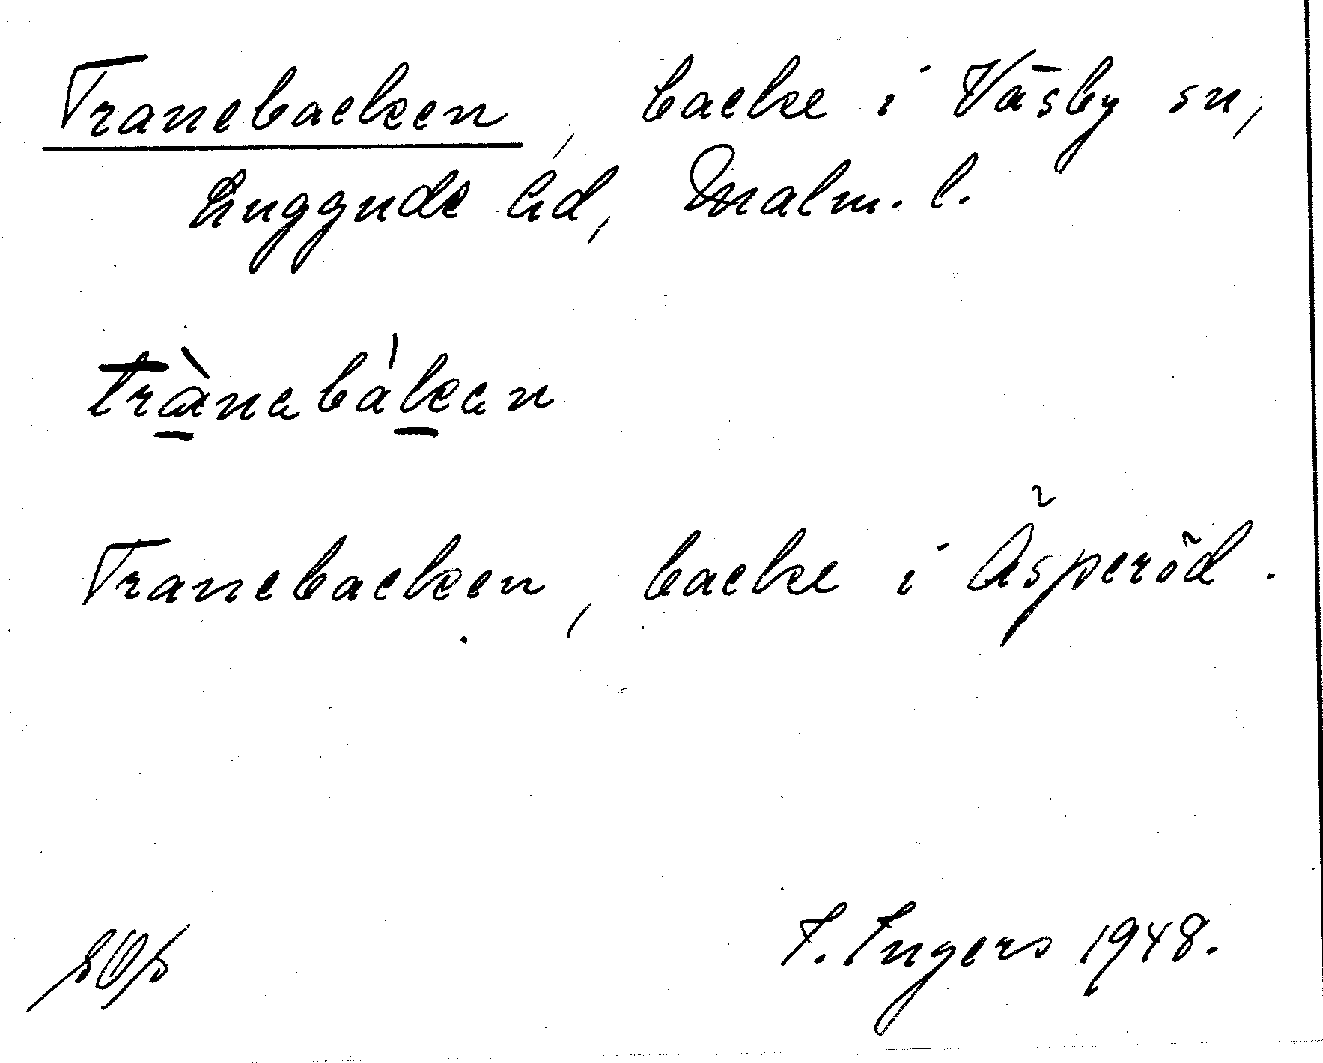 Tranebacken, backe i Väsby sn,
Luggude hd, Malm. l.
trànabákan
Tranebacken, backe i Åsperöd.
I. Ingers 1948.